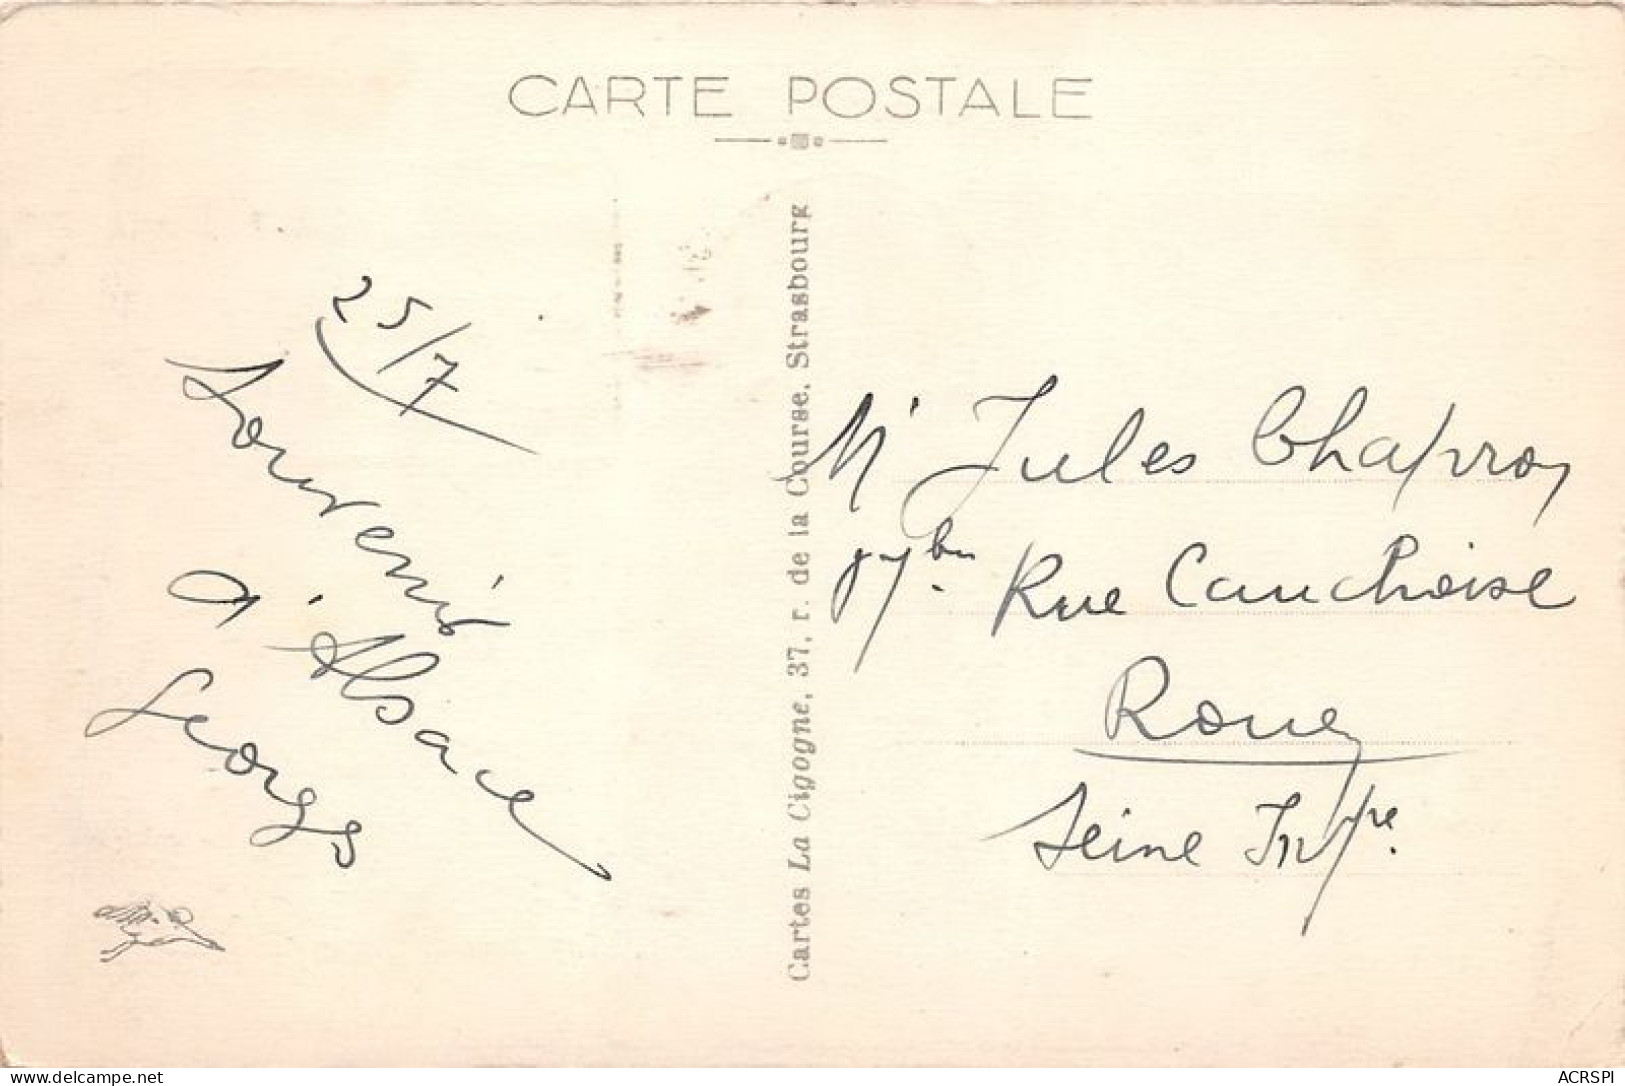 CARTE POSTALE
25/7
Souvenir
d'Alsace
Georges
Cartes La Cigogne, 37, r. de la Course, Strasbourg
Mr Jules
Rue Cauchoise
Rouen
Seine Infre.
delcampe.net
ACRSPI